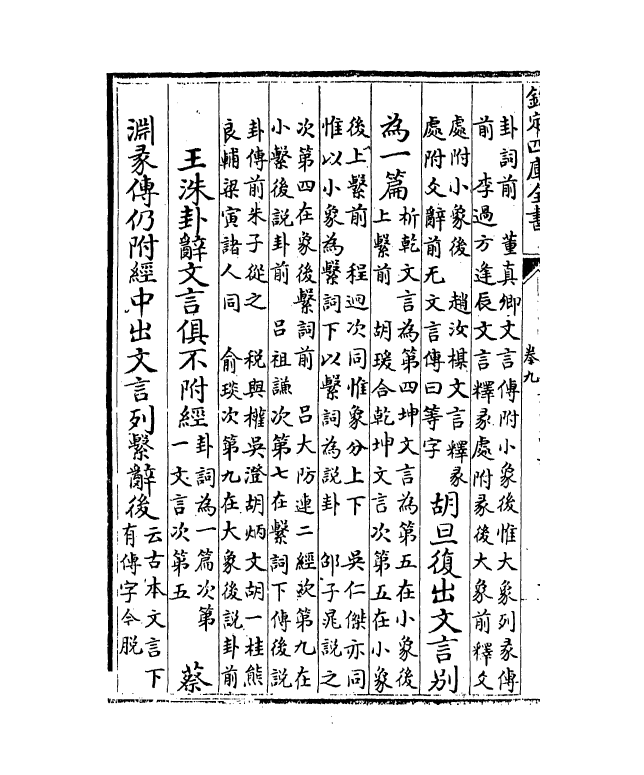 欽定四庫全書
卷九
卦詞前　董真卿文言傳附小象後惟大象列彖傳
前　李過方逢辰文言釋彖處附彖後大象前釋爻
處附小象後　趙汝楳文言釋彖
處附爻辭前无文言傳曰等字
胡旦復出文言别
為一篇
析乾文言為第四坤文言為第五在小象後
上繫前　胡瑗合乾坤文言次第五在小象
後上繫前　程迥次同惟象分上下　吳仁傑亦同
惟以小象為繫詞下以繫詞為説卦　邵子晁説之
次第四在象後繫詞前　呂大防連二經次第九在
小繫後説卦前　呂祖謙次第七在繫詞下傳後説
卦傳前朱子從之　税與權吳澄胡炳文胡一桂熊
良輔梁寅諸人同　俞琰次第九在大象後説卦前
王洙卦辭文言俱不附經
卦詞為一篇次第
一文言次第五
蔡
淵彖傳仍附經中出文言列繫辭後
云古本文言下
有傳字今脱